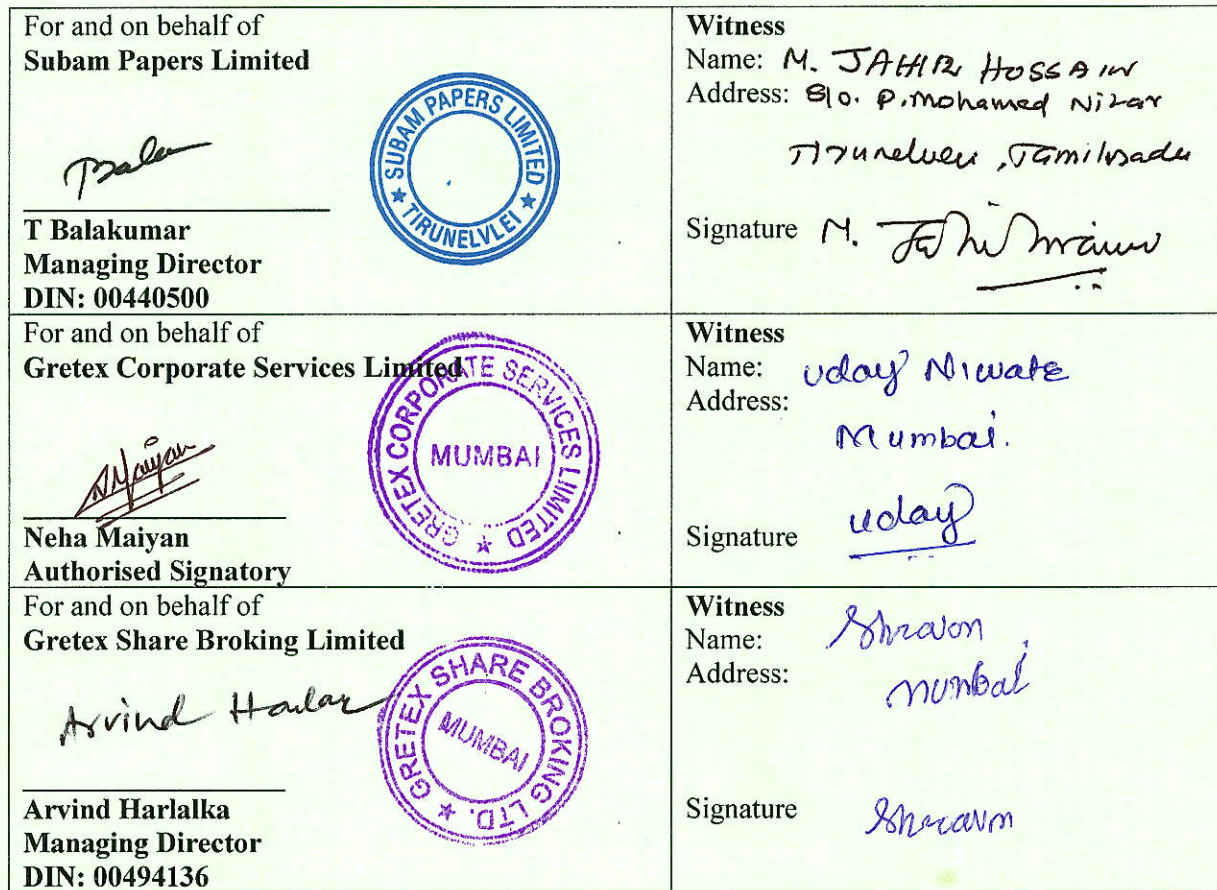 For and on behalf of
Subam Papers Limited
SUBAM PAPERS LIMITED
★ TIRUNELVLEI ★
T Balakumar
Managing Director
DIN: 00440500
Witness
Name: M. JAHIR HOSSAIN
Address: S/o. P. Mohamed Nizar
Tirunelveli, Tamilnadu
Signature M.
For and on behalf of
Gretex Corporate Services Limited
GRETEX CORPORATE SERVICES LIIMITED ★
MUMBAI
Neha Maiyan
Authorised Signatory
Witness
Name: Uday Niwate
Address:
Mumbai.
Signature uday
For and on behalf of
Gretex Share Broking Limited
GRETEX SHARE BROKING LTD. ★
MUMBAI
Arvind
Arvind Harlalka
Managing Director
DIN: 00494136
Witness
Name: Shravan
Address: Mumbai
Signature Shravan